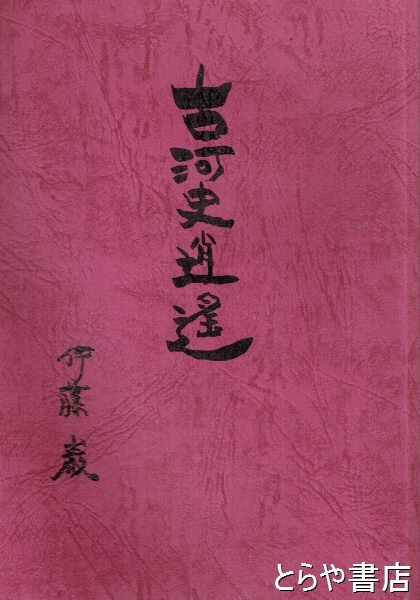 古河史逍遙
伊藤巌
とらや書店